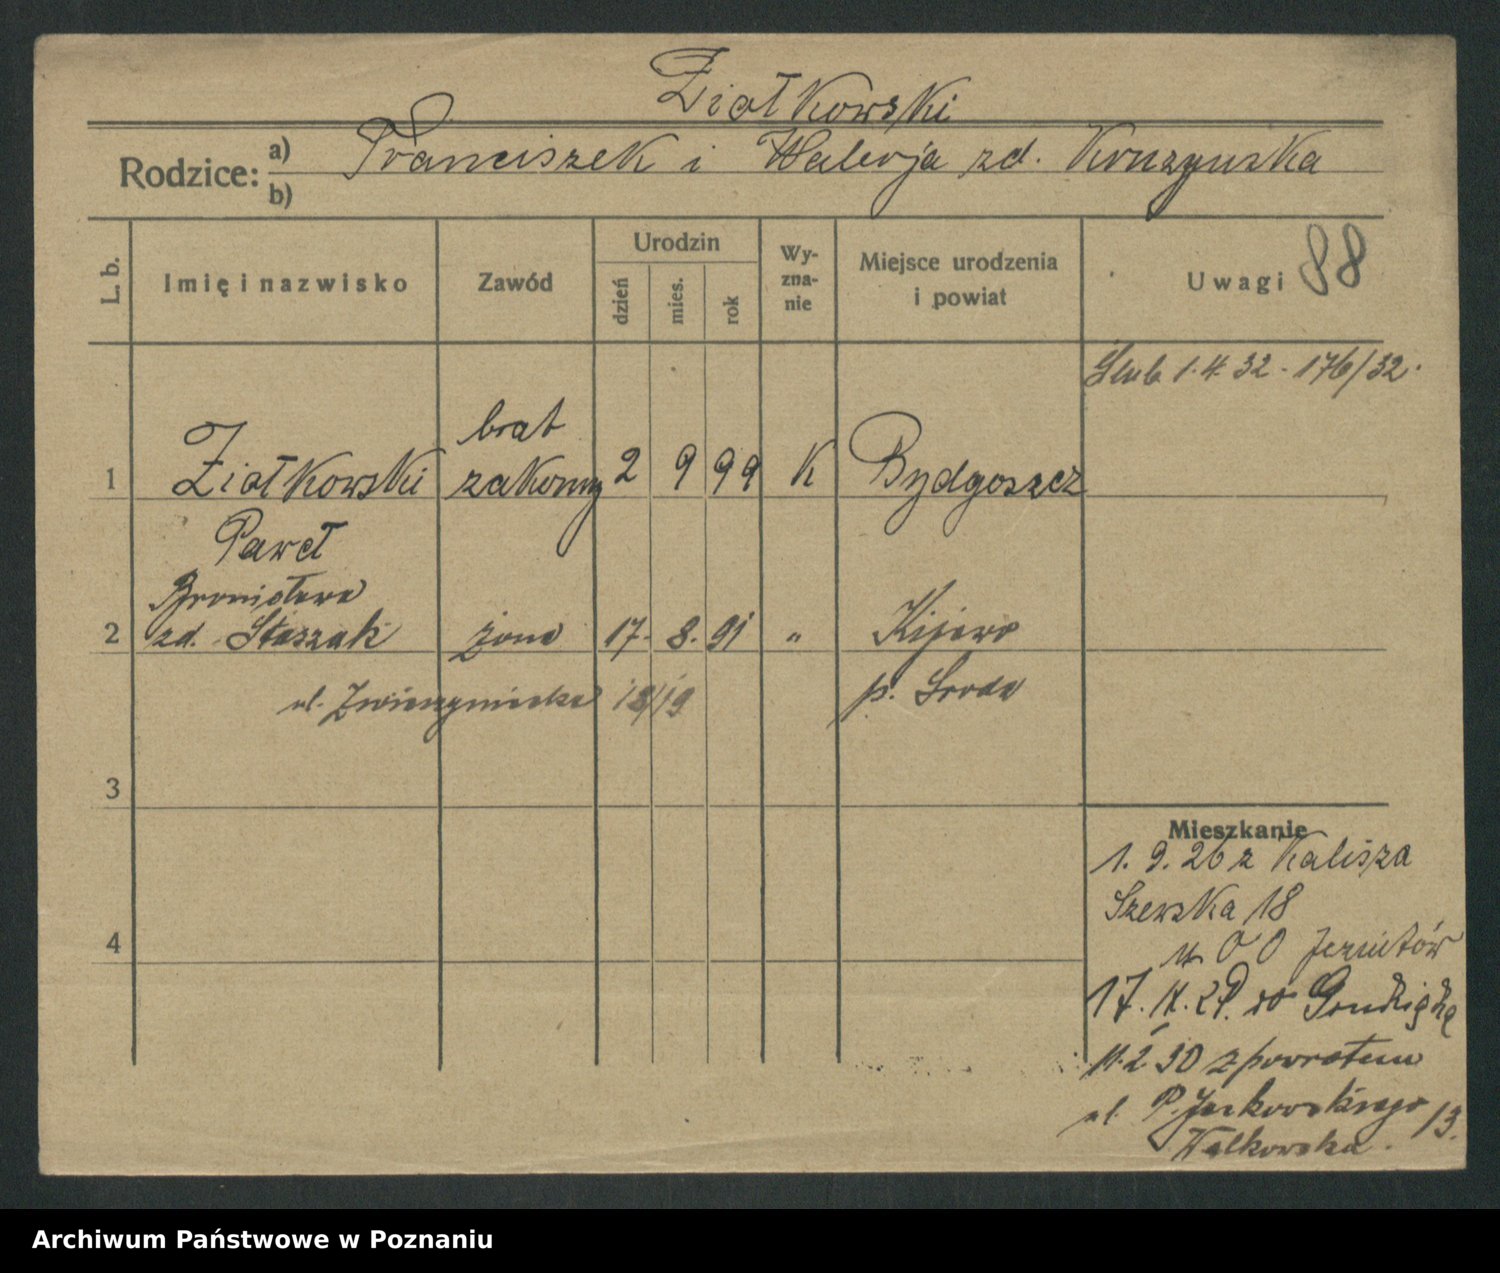 Ziołkowski
Rodzice: a) Franciszek i Walerja zd. Kruszyńska
b)
L. b.
Imię i nazwisko
Zawód
Urodzin
dzień
mies.
rok
Wy-
zna-
nie
Miejsce urodzenia
i powiat
Uwagi 88
Ślub 1.4.32 - 176/32.
1 Ziołkowski brat zakonny 2 9 99 K Bydgoszcz
Paweł
Bronisława
2 zd. Staszak żona 17. 8. 91 " Kijewo
ul. Zwierzyniecka 18/19 p. Środa
3
4
Mieszkanie
1. 9. 26 z Kalisza
Szewska 18
u OO Jezuitów
17. 11. 29. do Grudziądza
11. 2. 30 z powrotem
ul. P. Jackowskiego 13.
Walkowska.
Archiwum Państwowe w Poznaniu